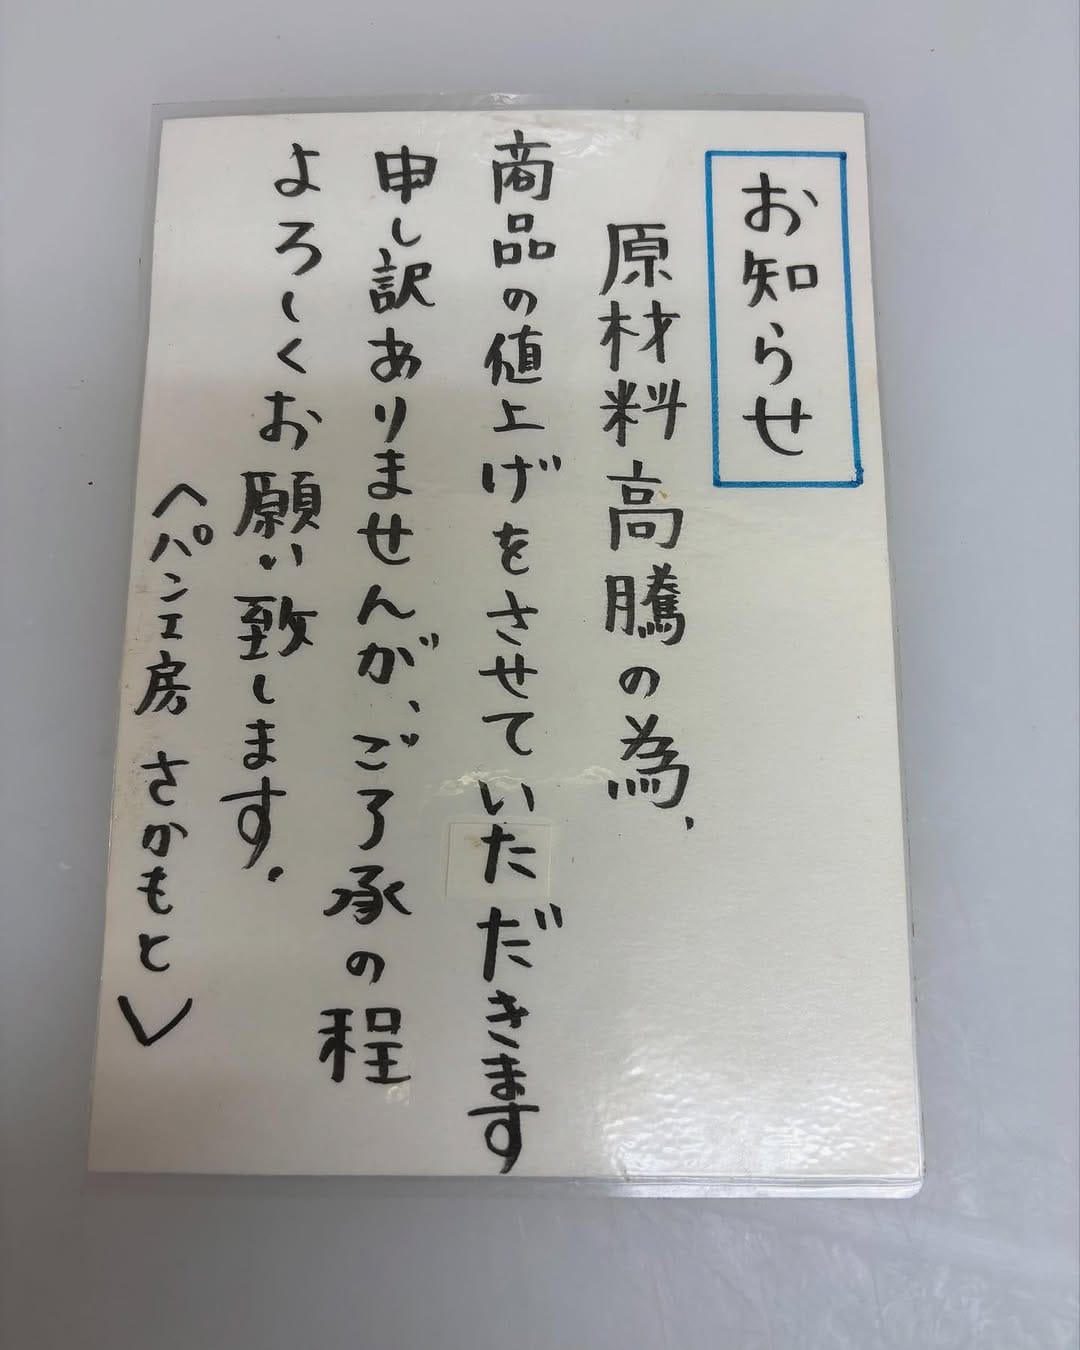 お知らせ
原材料高騰の為、
商品の値上げをさせていただきます
申し訳ありませんが、ご了承の程
よろしくお願い致します。
〈パン工房 さかもと〉